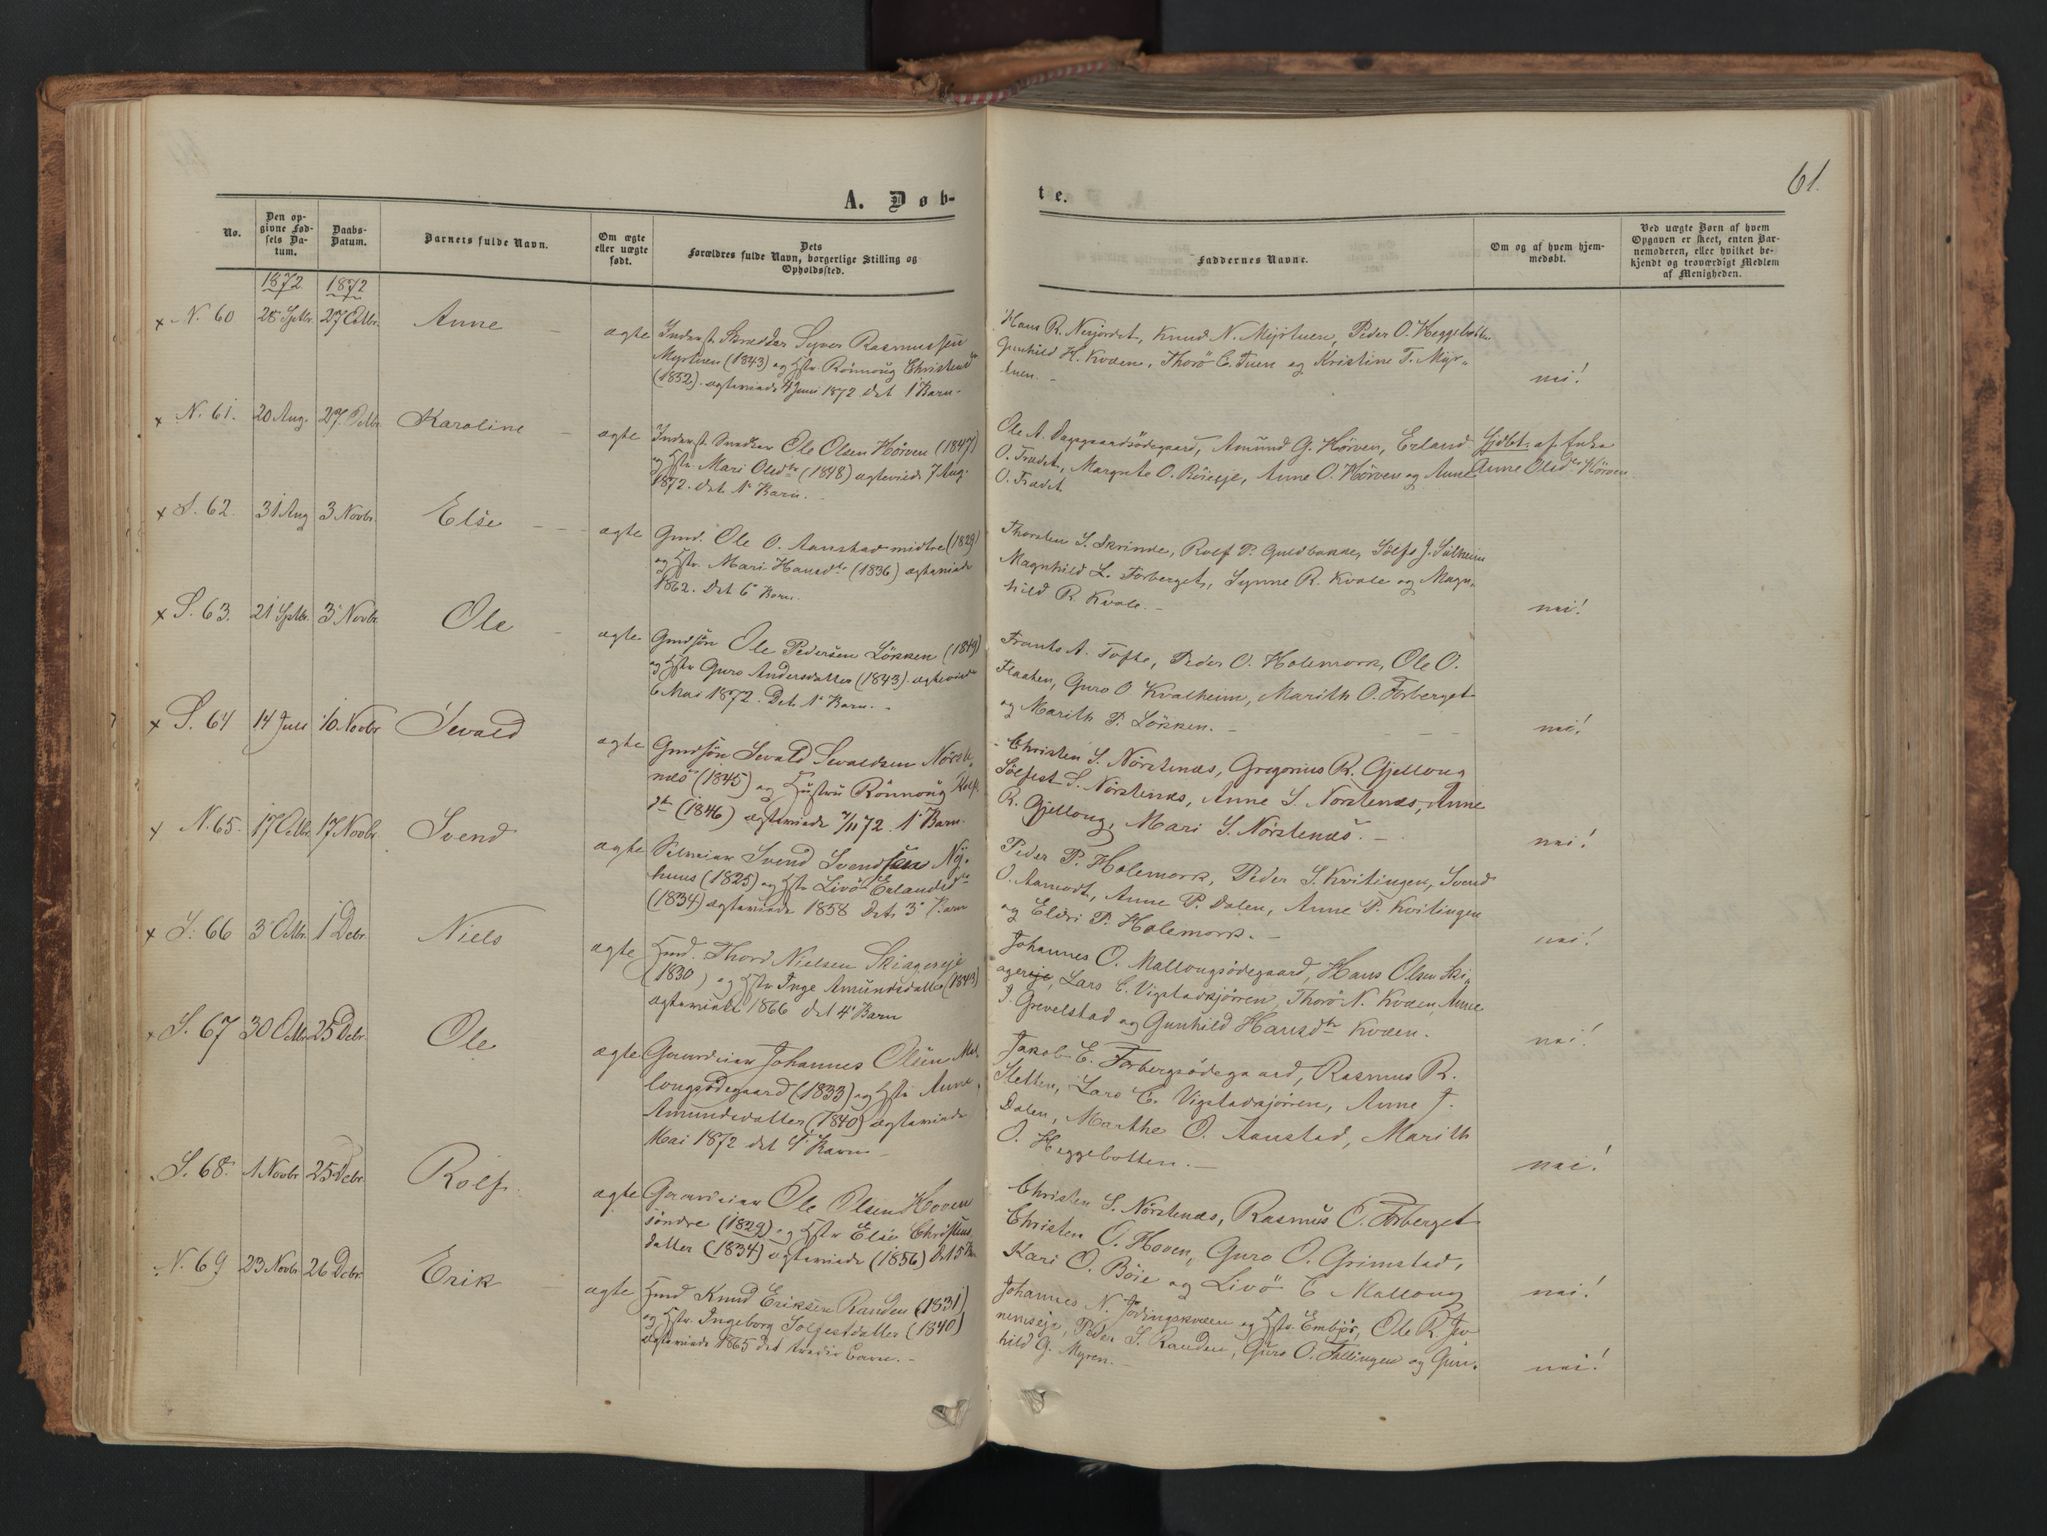 61.
A. Døb-
te.
No.
Den op-
givne Fød-
sels Da-
tum.
Daabs-
Datum.
Barnets fulde Navn.
Om ægte
eller uægte
født.
Dets
Forældres fulde Navn, borgerlige Stilling og
Opholdssted.
Faddernes Navne.
Om og af hvem hjem-
medøbt.
Ved uægte Børn af hvem
Opgaven er skeet, enten Bar-
nemoderen, eller hvilket be-
kjendt og troværdigt Medlem
af Menigheden.
1872 1872
x N. 60 28 Sptbr. 27 Octbr. Anne
ægte Inderst Skrædder Syver Rasmussen
Myrtuen (1843) og Hstr. Rönnoug Christensdtr
(1852). ægteviede 4 Juni 1872 det 1' Barn.
Hans R. Nesjordet, Knud N. Myrtuen, Peder O. Heggebotten
Gunhild H. Kvæen, Thorö E. Tuen og Kristine T. Myr-
tuen. -
nei!
x N. 61. 20 Aug. 27 Octbr. Karoline
ægte Inderst Snedker Ole Olsen Hörven (1847)
og Hstr. Mari Olsdtr (1848) ægteviede 7 Aug.
1872. det 1' Barn. -
Ole A. Dagsgaardsödegaard, Amund G. Hörven, Erland
O. Trædet, Margrete O. Böieeje, Anne O. Hörven og Anne
O. Trædet
Hjdbt. af Enke
Anne Olsdtr Hörven.
x S. 62. 31 Aug 3 Novbr. Else
ægte Gmd. Ole O. Aanstad midtre (1829)
og Hstr. Mari Hansdtr (1836) ægteviede
1862. Det 6' Barn.
Thorsten S. Skrinde, Rolf P. Guldbakke, Sölfest J. Sulheim
Magnhild L. Forberget, Synne R. Kvale og Magn-
hild R. Kvale. -
nei!
x S. 63. 21 Sptbr. 3' Novbr. Ole
ægte Gmdsön Ole Pedersen Lökken (1849)
og Hstr Guro Andersdatter (1843). ægteviede
6 Mai 1872. Det 1' Barn. -
Frants A. Tofte, Peder O. Holemork, Ole O.
Flaaten, Guro O. Kvalheim, Marith O. Forberget
og Marith P. Lökken. -
nei!
x S. 64 14 Juli 10. Novbr Sevald
ægte Gmdsön Sevald Sevaldsen Nörste-
næs (1845) og Hustru Rönnoug Rolfs
dtr (1846) ægteviede 7/11 72. 1' Barn.
Christen S. Nörstenæs, Gregorius R. Gjeiloug
Sölfest S. Nörstenæs, Anne S. Nörstenæs, Anne
R. Gjeiloug, Mari S. Nörstenæs. -
nei!
x N. 65. 17 Octbr. 17 Novbr. Svend
ægte Selveier Svend Svendsen Ny-
huus (1825) og Hstr Livö Erlandsdtr
(1834) ægteviede 1858 Det 3' Barn
Peder P. Holemork, Peder S. Kvitingen, Svend
O. Aamodt, Anne P. Dalen, Anne P. Kvitingen
og Eldri P. Holemork. -
nei!
x S. 66 3' Octbr. 1 Decbr. Niels
ægte Hmd. Thord Nielsen Skiagereje
(1830) og Hstr Inge Amundsdatter (1843)
ægteviede 1866 det 4' Barn
Johannes O. Mallongsödegaard, Hans Olsen Ski-
agereje, Lars E. Vigstadkjörren, Thorö N. Kvæen, Anne
J. Grevelstad og Gunhild Hansdtr Kvæen.
nei!
x S. 67 30 Octbr. 25 Debr. Ole
ægte Gaardeier Johannes Olsen Mal-
longsödegaard (1833) og Hstr Anne
Amundsdatter (1840) ægteviede
Mai 1872 det 4' Barn -
Jakob E. Forbergsödegaard, Rasmus R.
Sletten, Lars E. Vigstadkjörren, Anne J.
Dalen, Marthe O. Aanstad, Marith
O. Heggebotten. -
nei!
S. 68. 1 Novbr 25 Debr. Rolf
ægte Gaardeier Ole Olsen Hoven
söndre (1829) og Hstr Else Christens
datter (1834) ægteviede (1856) Det 5' Bn
Christen S. Nörstenæs, Rasmus O. Forberget
Christen O. Hoven, Guro O. Grimstad,
Kari O. Böie og Livö E Mallong
nei!
N. 69 23 Novbr 26 Debr. Erik
ægte Hmd Knud Eriksen Randen (1831)
og Hstr. Ingeborg Solfestdatter (1840)
ægteviede 1865 det tredie Barn. -
Johannes N. Jödingskvæen og Hstr. Embjör, Ole R. Jo-
nemseje, Peder S. Randen, Guro O. Fillingen og Gun-
hild G. Myren. -
nei!